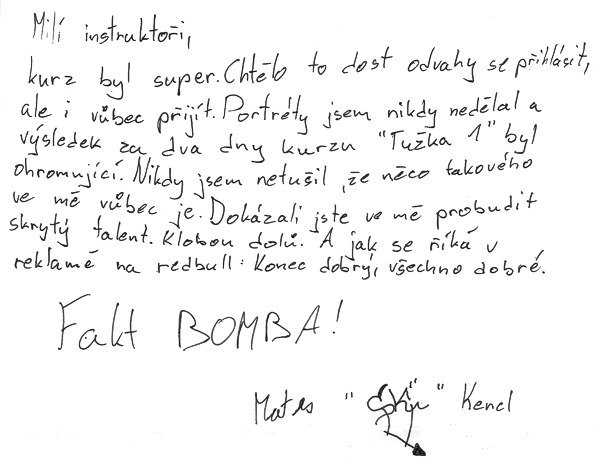 Milí instruktoři,
kurz byl super. Chtělo to dost odvahy se přihlásit,
ale i vůbec přijít. Portréty jsem nikdy nedělal a
výsledek za dva dny kurzu "Tužka 1" byl
ohromující. Nikdy jsem netušil, že něco takového
ve mě vůbec je. Dokázali jste ve mě probudit
skrytý talent. Klobou dolů. A jak se říká v
reklamě na redbull: Konec dobrý, všechno dobré.
Fakt BOMBA!
Mates " " Kencl